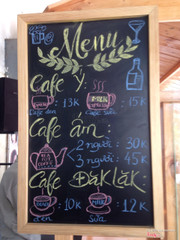 Menu
Cafe Ý:
: 13k
: 15k
Cafe đen
Cafe sữa
Cafe ấm:
2 người : 30k
3 người : 45k
Cafe Đăk lăk :
: 10k
: 12k
đen
sữa